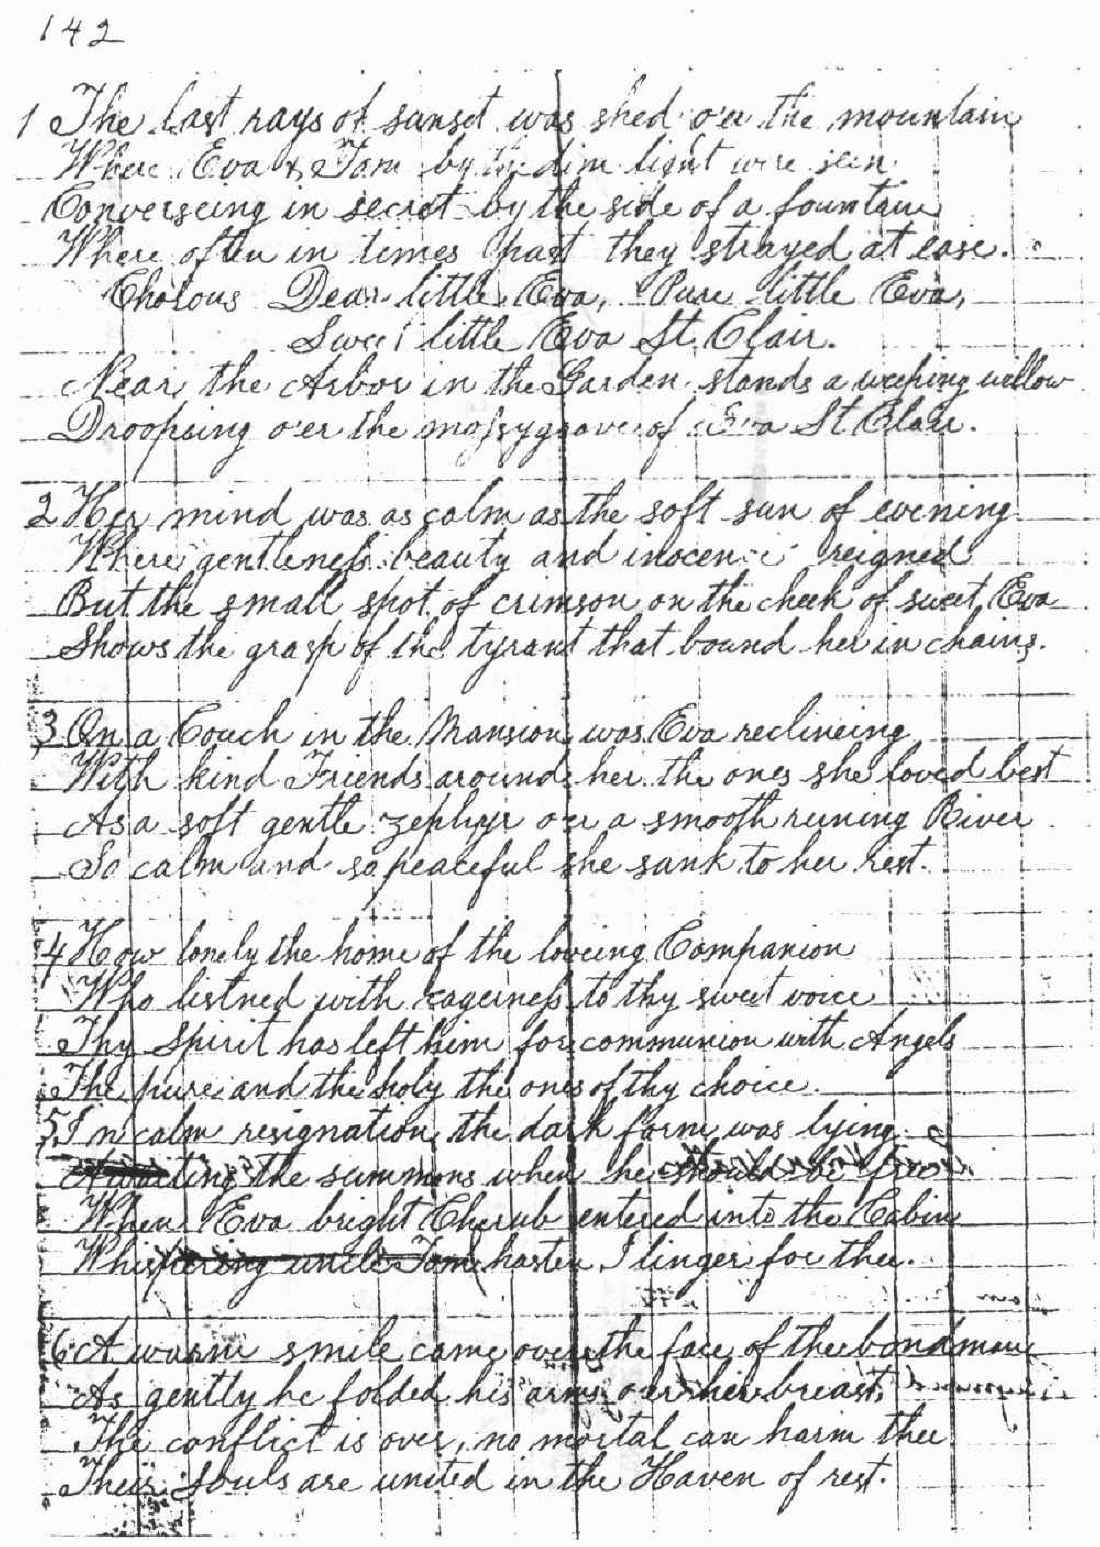 142
1 The last rays of sunset was shed o'er the mountain
Where Eva & Tom by the dim light were seen
Converseing in secret by the side of a fountain
Where often in times past they strayed at ease.
Chorous Dear little Eva, Pure little Eva,
Sweet little Eva St. Clair.
Near the Arbor in the Garden stands a weeping willow
Droopsing o'er the mossy grave of Eva St Clair.
2 Her mind was as calm as the soft sun of evening
Where gentleness beauty and inocence reigned
But the small spot of crimson on the cheek of sweet Eva
Shows the grasp of the tyrant that bound her in chains.
3 On a Couch in the Mansion was Eva reclineing
With kind Friends around her the ones she loved best
As a soft gentle zephyr oer a smooth runing River
So calm and so peaceful she sank to her rest.
4 How lonely the home of the loveing Companion
Who listned with eagerness to thy sweet voice
Thy Spirit has left him for communion with Angels
The pure and the holy the ones of thy choice.
5 In calm resignation the dark form was lying
Awaiting the summons when he should be free
When Eva bright Cherub entered into the Cabin
Whispering uncle Tom hasten I linger for thee.
6 A warm smile came over the face of the bondman
As gently he folded his arms oer her breast,
The conflict is over, no mortal can harm thee
Their Souls are united in the Haven of rest.